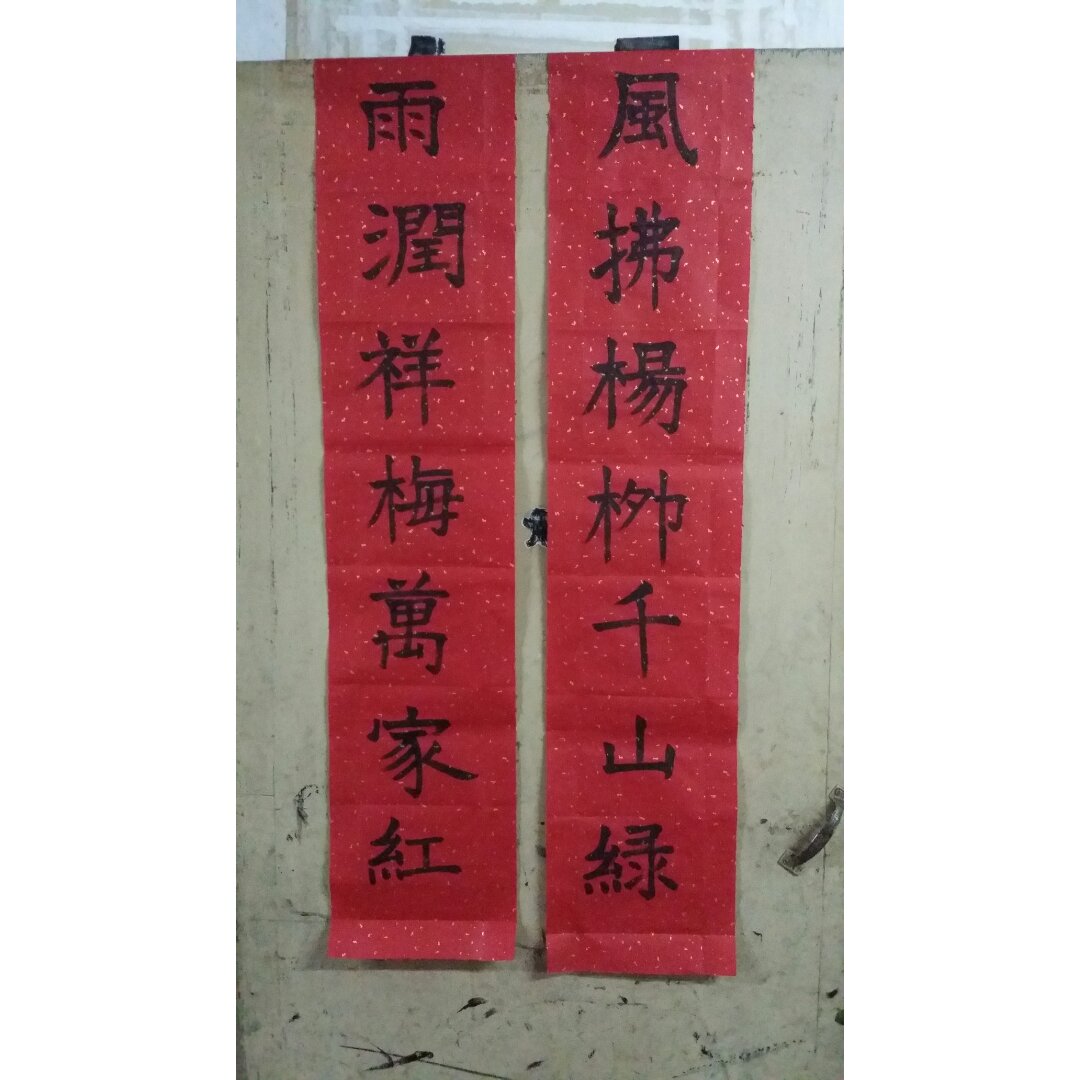 風拂楊柳千山緑
雨潤祥梅萬家紅